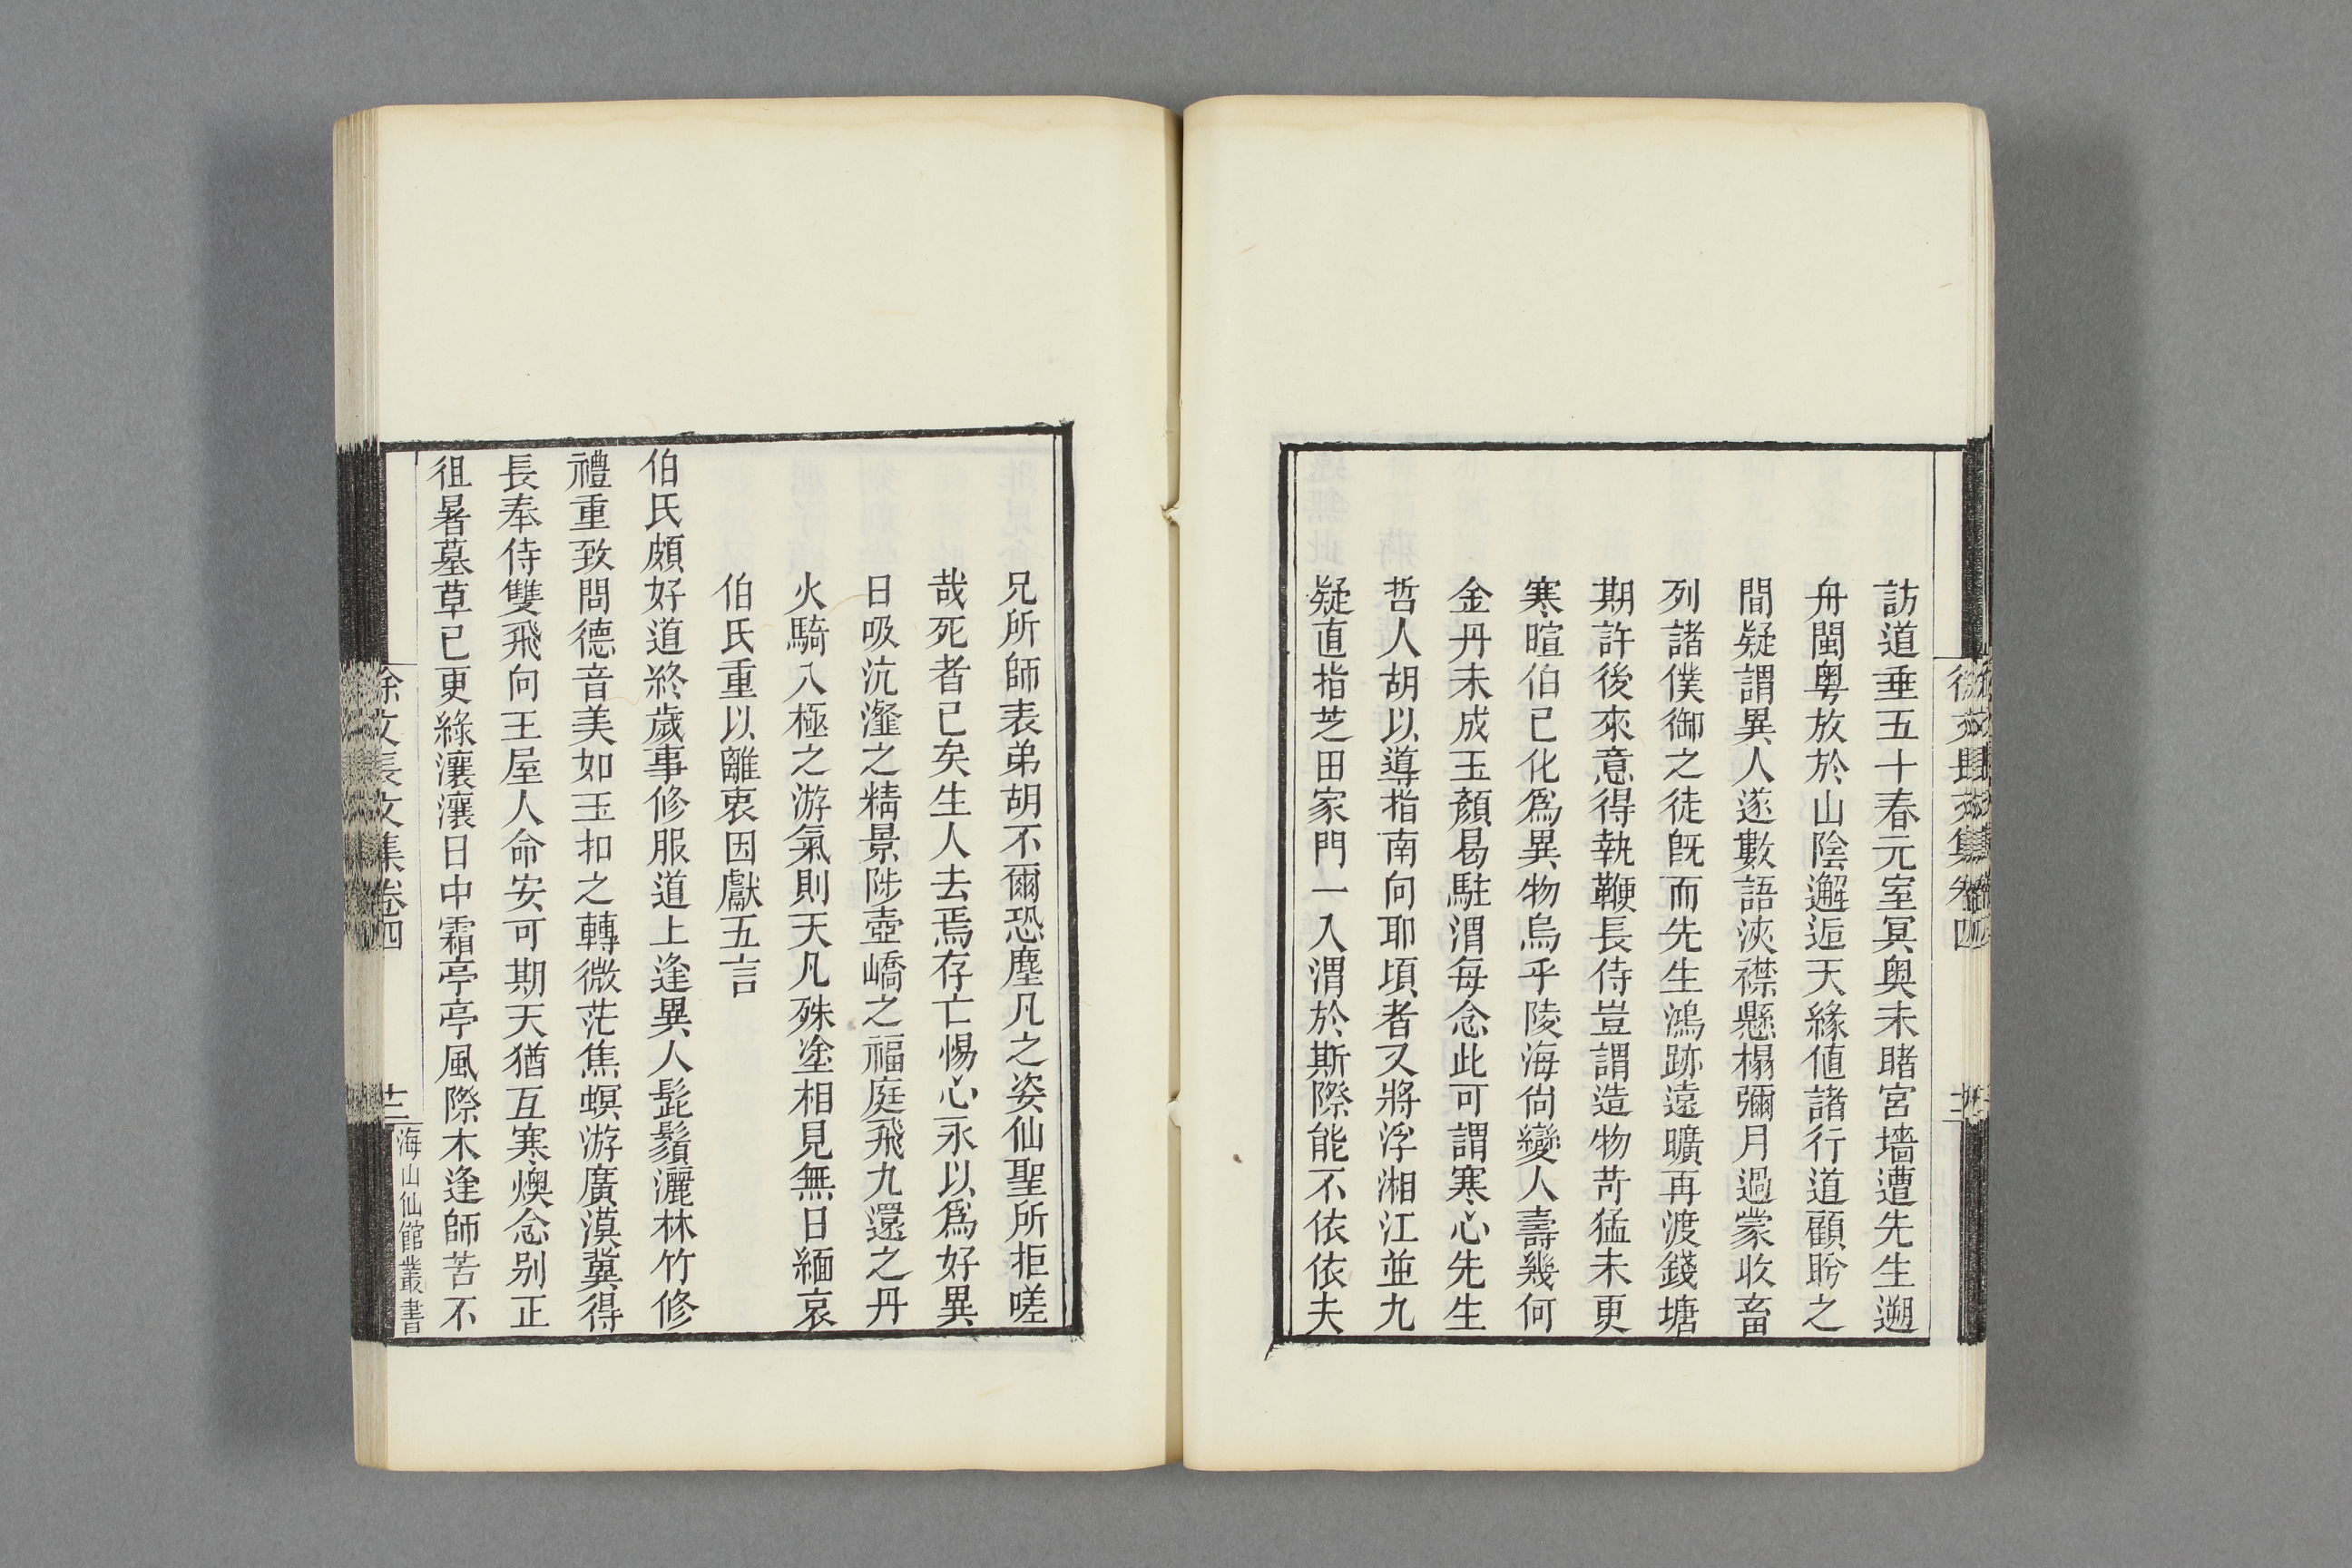 訪道垂五十春元室冥奧未睹宮墻遭先生遡
舟閩粤放於山陰邂逅天緣値諸行道顧盻之
間疑謂異人遂數語浹襟懸榻彌月過蒙收畜
列諸僕御之徒旣而先生鴻跡遠曠再渡錢塘
期許後來意得執鞭長侍豈謂造物苛猛未更
寒暄伯已化爲異物烏乎陵海尙變人壽幾何
金丹未成玉顏易駐渭每念此可謂寒心先生
哲人胡以導指南向耶頃者又將浮湘江並九
疑直指芝田家門一入渭於斯際能不依依夫
兄所師表弟胡不爾恐塵凡之姿仙聖所拒嗟
哉死者已矣生人去焉存亡惕心永以爲好異
日吸沆瀣之精景陟壺嶠之福庭飛九還之丹
火騎八極之游氣則天凡殊塗相見無日緬哀
伯氏重以離衷因獻五言
伯氏頗好道終歲事修服道上逢異人髭鬚灑林竹修
禮重致問德音美如玉扣之轉微茫焦螟游廣漠冀得
長奉侍雙飛向王屋人命安可期天猶互寒燠念别正
徂暑墓草已更綠瀼瀼日中霜亭亭風際木逢師苦不
徐文長文集卷四
十二
海山仙館叢書